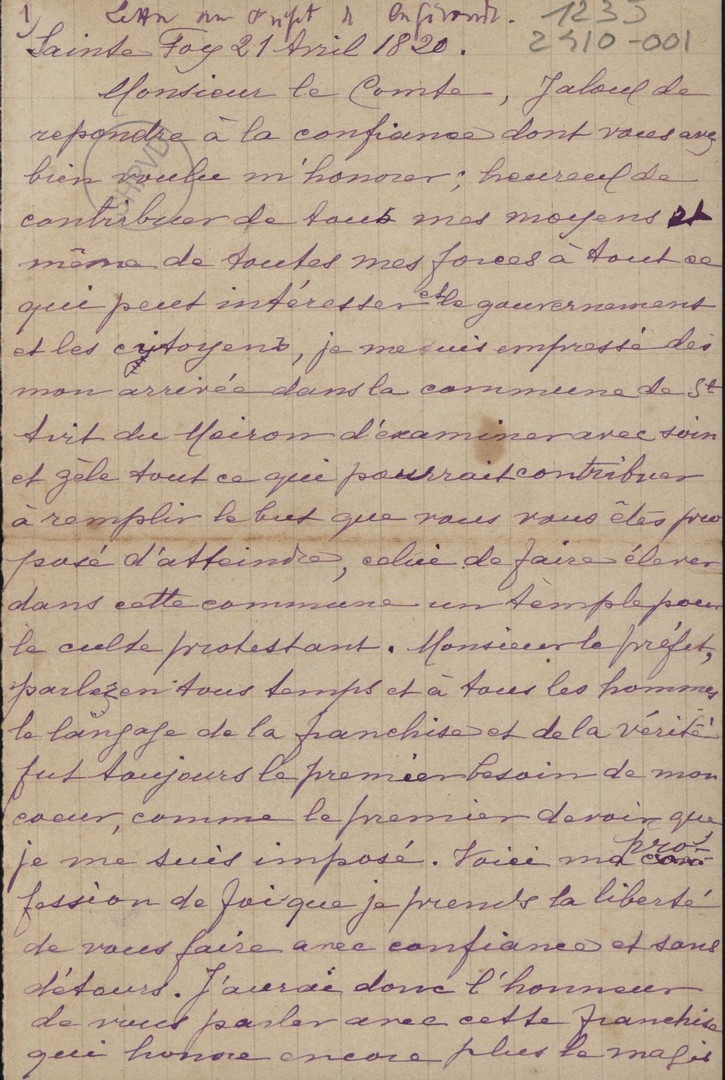 1) Lettre au préfet de la Gironde.
1235
2510-001
Sainte Foy 21 Avril 1820.
Monsieur le Comte, Jaloux de
repondre à la confiance dont vous avez
bien voulu m'honorer; heureux de
contribuer de tous mes moyens et
même de toutes mes forces à tout ce
qui peut intéresser et le gouvernement
et les citoyens, je me suis empressé dès
mon arrivée dans la commune de St
Avit du Moiron d'examiner avec soin
et zèle tout ce qui pourrait contribuer
à remplir le but que vous vous êtes pro
posé d'atteindre, celui de faire élever
dans cette commune un temple pour
le culte protestant. Monsieur le préfet,
parlez en tous temps et à tous les hommes
le langage de la franchise et de la vérité
fut toujours le premier besoin de mon
coeur, comme le premier devoir que
je me suis imposé. Voici ma pro-
fession de foi que je prends la liberté
de vous faire avec confiance et sans
détours. J'aurai donc l'honneur
de vous parler avec cette franchise
qui honore encore plus le magis
SHPVD